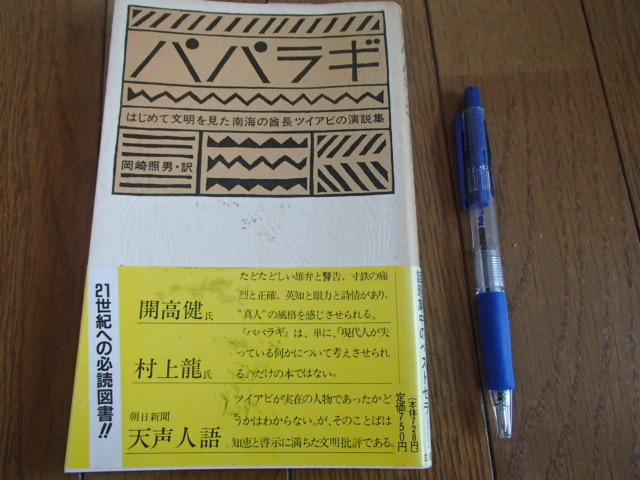 パパラギ
はじめて文明を見た南海の酋長ツイアビの演説集
岡崎照男・訳
21世紀への必読図書!!
開高健氏
たどたどしい雄弁と警告、寸鉄の痛
烈と正確、英知と眼力と詩情があり、
“真人”の風格を感じさせられる。
村上龍氏
『パパラギ』は、単に、「現代人が失
っている何かについて考えさせられ
る」だけの本ではない。
朝日新聞
天声人語
ツイアビが実在の人物であったかど
うかはわからない。が、そのことばは
知恵と啓示に満ちた文明批評である。
定価750円
(本体728円)